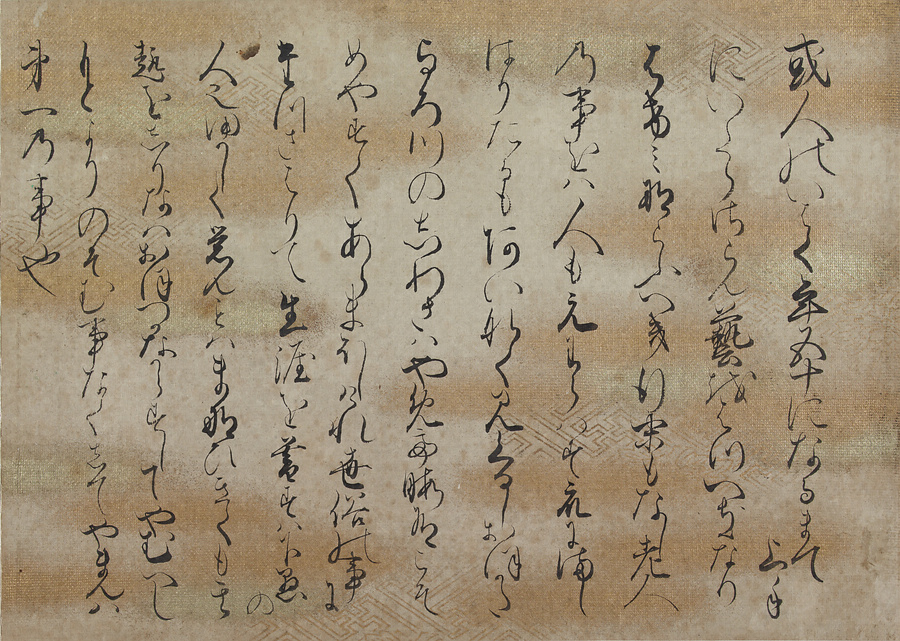 或人のいはく年五十になるまて上手
にいたらさらん藝をはすつへきなり
はけみならふへき行末もなし老人
の事をは人もえわらはす衆にまし
はりたるもあいなく見くるしおほかた
よろつのしわさはやめて暇あるこそ
めやすくあらまほしけれ世俗の事に
たつさはりて生涯を暮すは下愚の
人也ゆかしく覚えんことはまなひきくとも其
趣をしりなはおほつかなからすしてやむへし
もとよりのそむ事なくしてやまんは
第一の事也